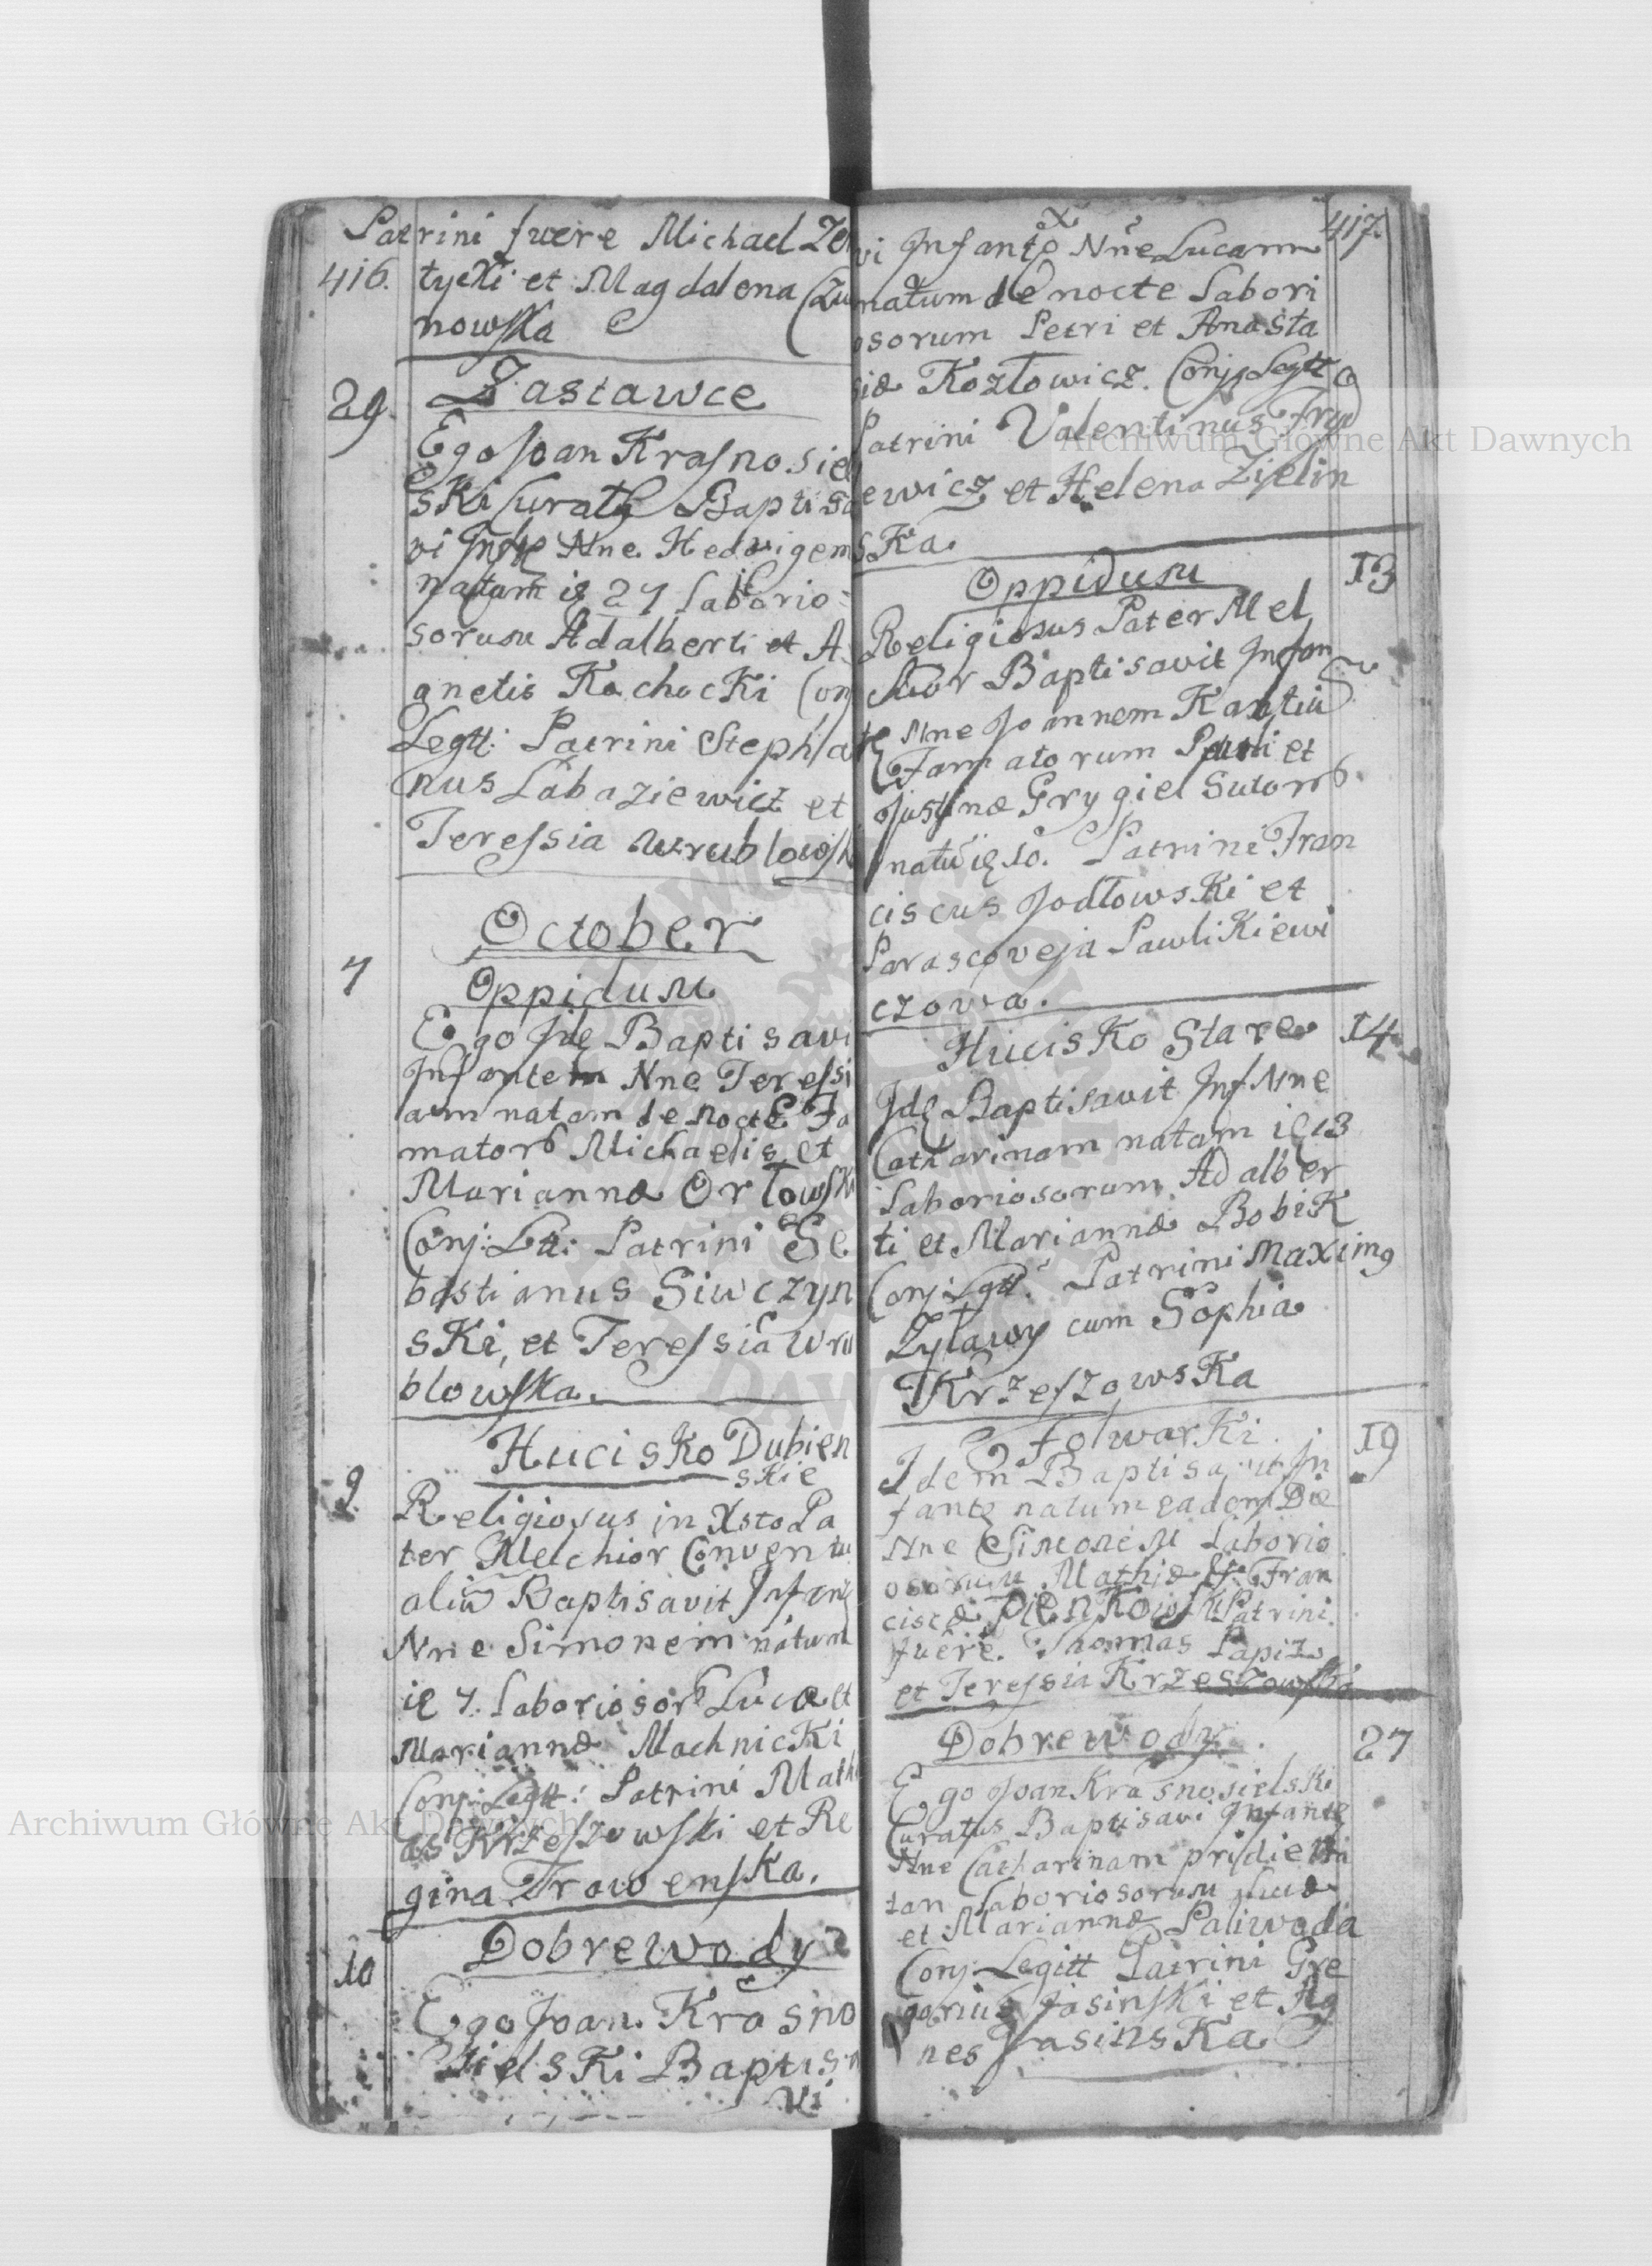 416.
Patrini fuere Michael Ze
tycki et Magdalena Czu
nowska
Zastawce
29.
Ego Joan Krasnosiel
ski Curatg Baptisa
vi Nne Hedvigem
natam 27 Laborio=
sorum Adalberti et A
gnetis Kochocki Conj
Legtt: Patrini Stepha
nus Labaziewicz et
Teressia Wrublowsk
October
7
Oppidum
Ego Baptisavi
Infantem Nne Teressi
am natam de nocte Fa
mator Michaelis et
Mariannæ Orłowski
Conj: Ltt: Patrini Se
bastianus Siwczyn
ski, et Teressia Wru
blowska.
Hucisko Dubien
skie
9.
Religiosus in Xsto Pa
ter Melchior Conventu
aliu Baptisavit Infan
Nne Simonem natum
7. Laboriosor Lucæ et
Mariannæ Machnicki
Conj: Legtt: Patrini Math
as Krzeszowski et Re
gina Trawenska.
Dobrewody
10
Ego Joan. Krasno
sielski Baptisa
vi
417.
vi Nne Lucam
natum de nocte Labori
osorum Petri et Anasta
siæ Kozłowicz. Conj Legtt
Patrini Valentinus Fryd
ewicz et Helena Zielin
ska.
Oppidum
13
Religiosus Pater Mel
chior Baptisavit Infan
Nne Joannem Kantiu
Famatorum Pauli et
Justinæ Grygiel Sutor
natu 10. Patrini Fran
ciscus Jodłowski et
Parascoveja Pawlikiewi
czowa.
Hucisko Stare
14
Idę Baptisavit Inf Nne
Catharinam natam 13
Laboriosorum Adalber
ti et Mariannæ Bobik
Conj Legtt. Patrini Maximg
Zyławy cum Sophia
Krzeszowska
Folwarki.
19
Idem Baptisavit In
fantę natum eadem Die
Nne Simonem Laborio
osorum Mathiæ et Fran
ciscæ Pienkowski Patrini
fuere. Thomas Łapiz
et Teressia Krzeszowska
Dobrewody
27
Ego Joan Krasnosielski
Curatus Baptisavi Infantę
Nne Catharinam pridie na
tam Laboriosorum Lucæ
et Mariannæ Paliwoda
Conj: Legitt Patrini Gre
gorius Jasinski et Ag
nes Jasinska
Archiwum Główne Akt Dawnych
Archiwum Główne Akt Dawnych